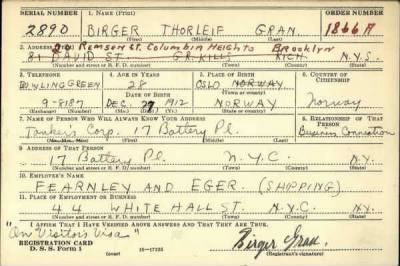 SERIAL NUMBER 1. NAME (Print) ORDER NUMBER
2890 BIRGER THORLEIF GRAN. 1866 A
(First) (Middle) (Last)
2. ADDRESS (Print) Remsen St. Columbia Heights Brooklyn
81 DAVID ST. GR. KILLS RICH. N.Y.S.
(Number and street or R. F. D. number) (Town) (County) (State)
3. TELEPHONE 4. AGE IN YEARS 5. PLACE OF BIRTH 6. COUNTRY OF CITIZENSHIP
BOWLING GREEN 28 OSLO NORWAY
DATE OF BIRTH (Town or county)
9-8187 DEC. 27, 1912 NORWAY Norway
(Exchange) (Number) (Mo.) (Day) (Yr.) (State or country)
7. NAME OF PERSON WHO WILL ALWAYS KNOW YOUR ADDRESS 8. RELATIONSHIP OF THAT PERSON
Tankers Corp. 17 Battery Pl. Business Connection
(Mr., Mrs., Miss) (First) (Middle) (Last)
9. ADDRESS OF THAT PERSON
17 Battery Pl. N.Y.C. N.Y.
(Number and street or R. F. D. number) (Town) (County) (State)
10. EMPLOYER'S NAME
FEARNLEY AND EGER (SHIPPING)
11. PLACE OF EMPLOYMENT OR BUSINESS
44 WHITEHALL ST. N.Y.C. N.Y.
(Number and street or R. F. D. number) (Town) (County) (State)
I AFFIRM THAT I HAVE VERIFIED ABOVE ANSWERS AND THAT THEY ARE TRUE.
"On Visitors Visa"
REGISTRATION CARD
D. S. S. Form 1 (over) 16—17105 Birger Gran.
(Registrant's signature)